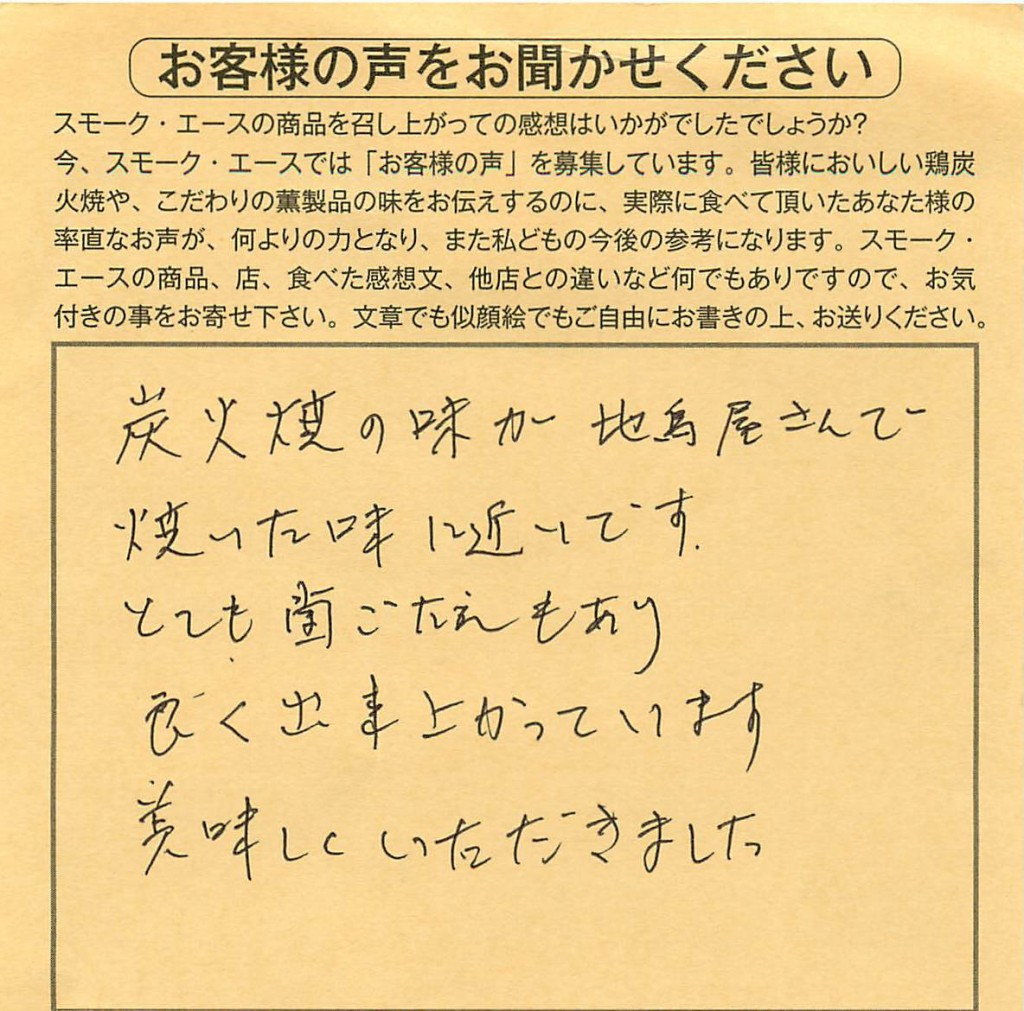 お客様の声をお聞かせください
スモーク・エースの商品を召し上がっての感想はいかがでしたでしょうか?
今、スモーク・エースでは「お客様の声」を募集しています。皆様においしい鶏炭
火焼や、こだわりの薫製品の味をお伝えするのに、実際に食べて頂いたあなた様の
率直なお声が、何よりの力となり、また私どもの今後の参考になります。スモーク・
エースの商品、店、食べた感想文、他店との違いなど何でもありですので、お気
付きの事をお寄せ下さい。文章でも似顔絵でもご自由にお書きの上、お送りください。
炭火焼の味が地鳥屋さんで
焼いた味に近いです.
とても歯ごたえもあり
良く出来上がっています
美味しくいただきました